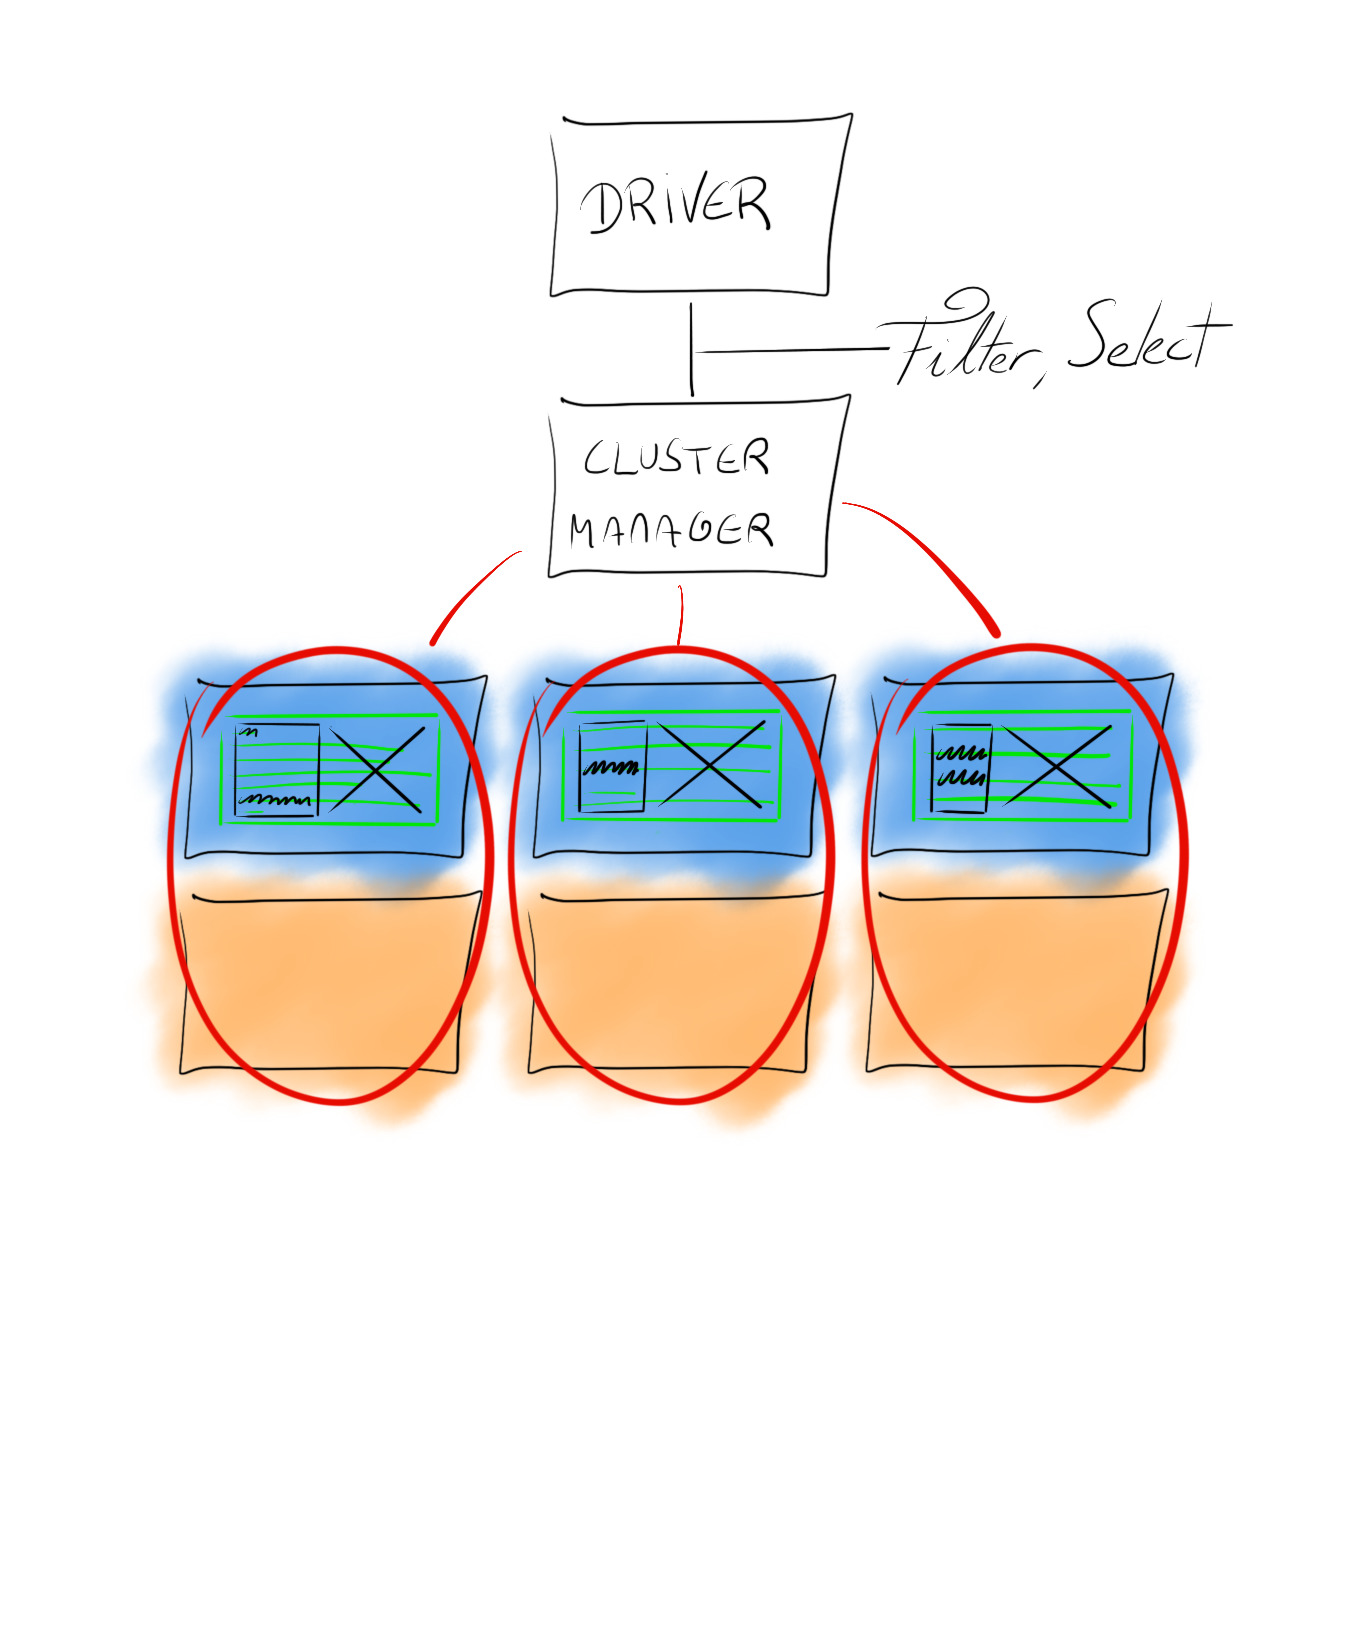 DRIVER
Filter, Select
CLUSTER
MANAGER